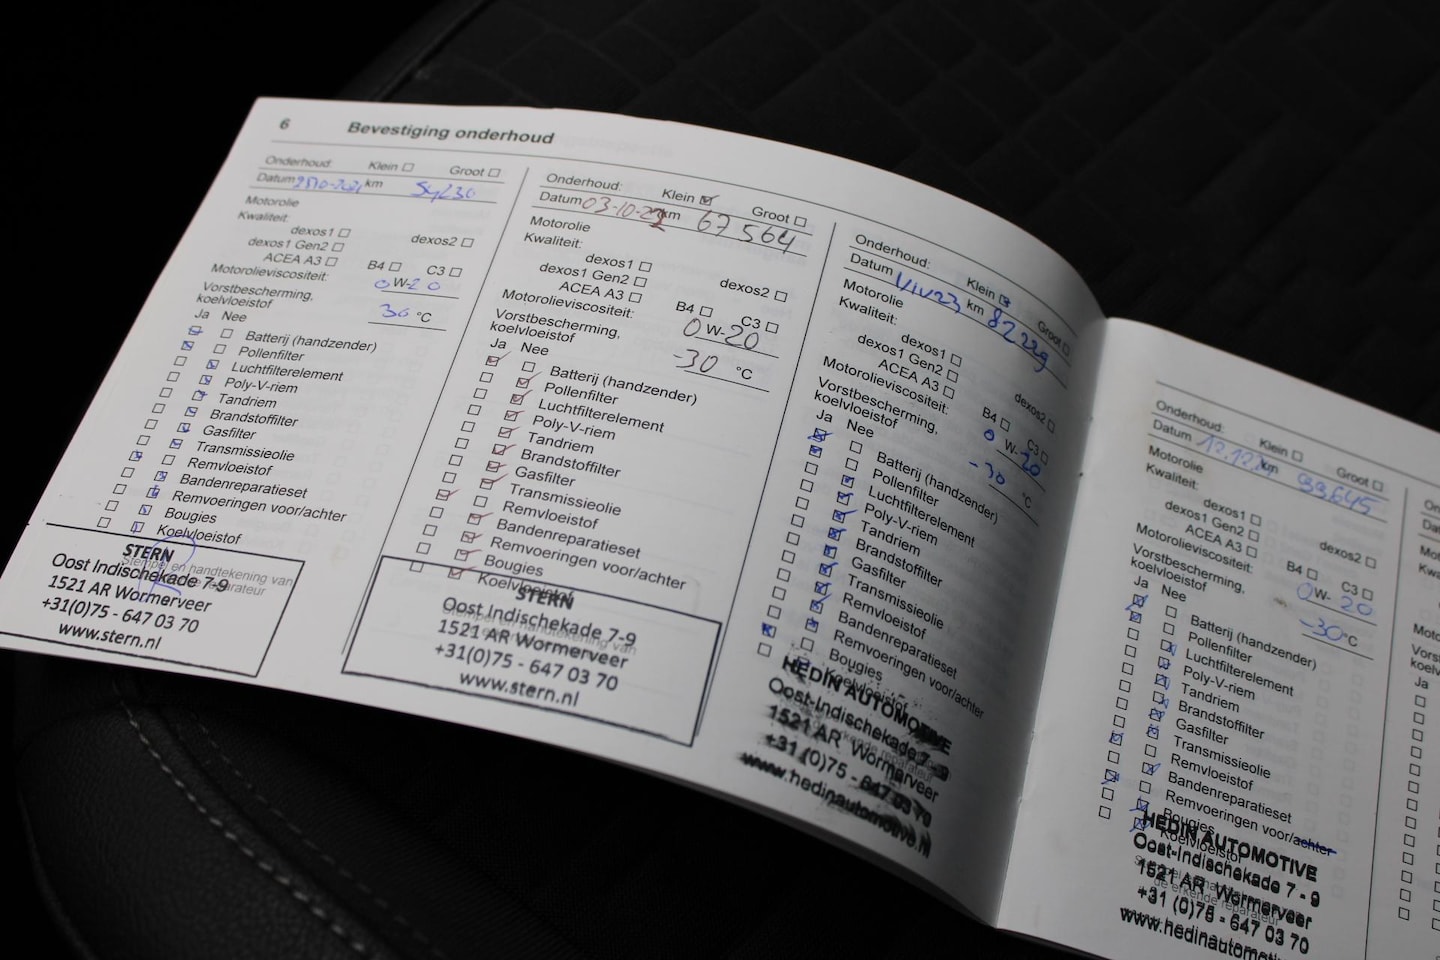 6 Bevestiging onderhoud
Onderhoud: Klein Groot
Datum km
Motorolie
Kwaliteit:
dexos1
dexos1 Gen2 dexos2
ACEA A3 B4 C3
Motorolieviscositeit: 0 W-20
Vorstbescherming,
koelvloeistof 30 °C
Ja Nee
Batterij (handzender)
Pollenfilter
Luchtfilterelement
Poly-V-riem
Tandriem
Brandstoffilter
Gasfilter
Transmissieolie
Remvloeistof
Bandenreparatieset
Remvoeringen voor/achter
Bougies
Koelvloeistof
Stempel en handtekening van
STERN
Oost Indischekade 7-9
1521 AR Wormerveer
+31(0)75 - 647 03 70
www.stern.nl
Onderhoud: Klein Groot
Datum 03-10-22 km 67 564
Motorolie
Kwaliteit:
dexos1
dexos1 Gen2 dexos2
ACEA A3 B4 C3
Motorolieviscositeit: 0 W-20
Vorstbescherming,
koelvloeistof -30 °C
Ja Nee
Batterij (handzender)
Pollenfilter
Luchtfilterelement
Poly-V-riem
Tandriem
Brandstoffilter
Gasfilter
Transmissieolie
Remvloeistof
Bandenreparatieset
Remvoeringen voor/achter
Bougies
Koelvloeistof
STERN
Oost Indischekade 7-9
1521 AR Wormerveer
+31(0)75 - 647 03 70
www.stern.nl
Onderhoud: Klein Groot
Datum km
Motorolie
Kwaliteit:
dexos1
dexos1 Gen2 dexos2
ACEA A3 B4 C3
Motorolieviscositeit: 0 W-20
Vorstbescherming,
koelvloeistof -30 °C
Ja Nee
Batterij (handzender)
Pollenfilter
Luchtfilterelement
Poly-V-riem
Tandriem
Brandstoffilter
Gasfilter
Transmissieolie
Remvloeistof
Bandenreparatieset
Remvoeringen voor/achter
Bougies
Koelvloeistof
HEDIN AUTOMOTIVE
Oost-Indischekade 7 - 9
1521 AR Wormerveer
+31 (0)75 - 647 03 70
www.hedinautomotive.nl
Onderhoud: Klein Groot
Datum km
Motorolie
Kwaliteit:
dexos1
dexos1 Gen2 dexos2
ACEA A3 B4 C3
Motorolieviscositeit: 0 W-20
Vorstbescherming,
koelvloeistof -30 °C
Ja Nee
Batterij (handzender)
Pollenfilter
Luchtfilterelement
Poly-V-riem
Tandriem
Brandstoffilter
Gasfilter
Transmissieolie
Remvloeistof
Bandenreparatieset
Remvoeringen voor/achter
Bougies
Koelvloeistof
de erkende reparateur
HEDIN AUTOMOTIVE
Oost-Indischekade 7 - 9
1521 AR Wormerveer
+31 (0)75 - 647 03 70
www.hedinautomoti
Ja